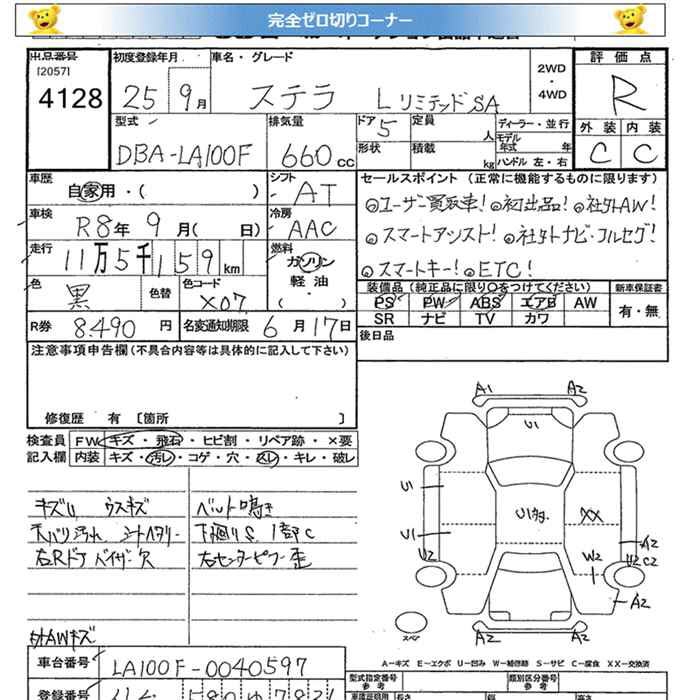 完全ゼロ切りコーナー
出品番号
[2057]
4128
初度登録年月
25 9月
車名・グレード
ステラ L リミテッド SA
2WD
・
4WD
評価点
R
外装 内装
C C
型式
DBA-LA100F
排気量
660cc
ドア 5
定員
人
形状
積載
kg
ディーラー・並行
モデル年式 年
ハンドル 左・右
車歴
自家用・( )
シフト
AT
車検
R8年 9月( 日)
冷房
AAC
走行
11万5千159km
燃料
ガソリン
軽油
・( )
色
黒
色替
色コード
X07
R券
8.490円
名変通知期限 6月17日
セールスポイント (正常に機能するものに限ります)
◎ユーザー買取車!◎初出品!◎社外AW!
◎スマートアシスト!◎社外ナビ・フルセグ!
◎スマートキー!◎ETC!
装備品(純正品に限り○をつけてください)
PS PW ABS エアB AW
SR ナビ TV カワ
新車保証書
有・無
後日品
注意事項申告欄(不具合内容等は具体的に記入して下さい)
修復歴 有 [箇所 ]
検査員
記入欄
FW キズ・飛石・ヒビ割・リペア跡・×要
内装 キズ・汚レ・コゲ・穴・スレ・キレ・破レ
キズU ウスキズ
天バリ汚れ シートヘタリー
右Rドアバイザー欠
ベルト鳴き
下廻りS 1部C
右センターピラー歪
外AWキズ
A1 A2
U1
U1
U1
U2
XX
W2
A2
U2 C2
A2
A2 A2
スペア
A=キズ E=エクボ U=凹み W=補修跡 S=サビ C=腐食 XX=交換済
車台番号
LA100F-0040597
登録番号
型式指定番号
参考
類別区分番号
参考
長さ
幅
高さ